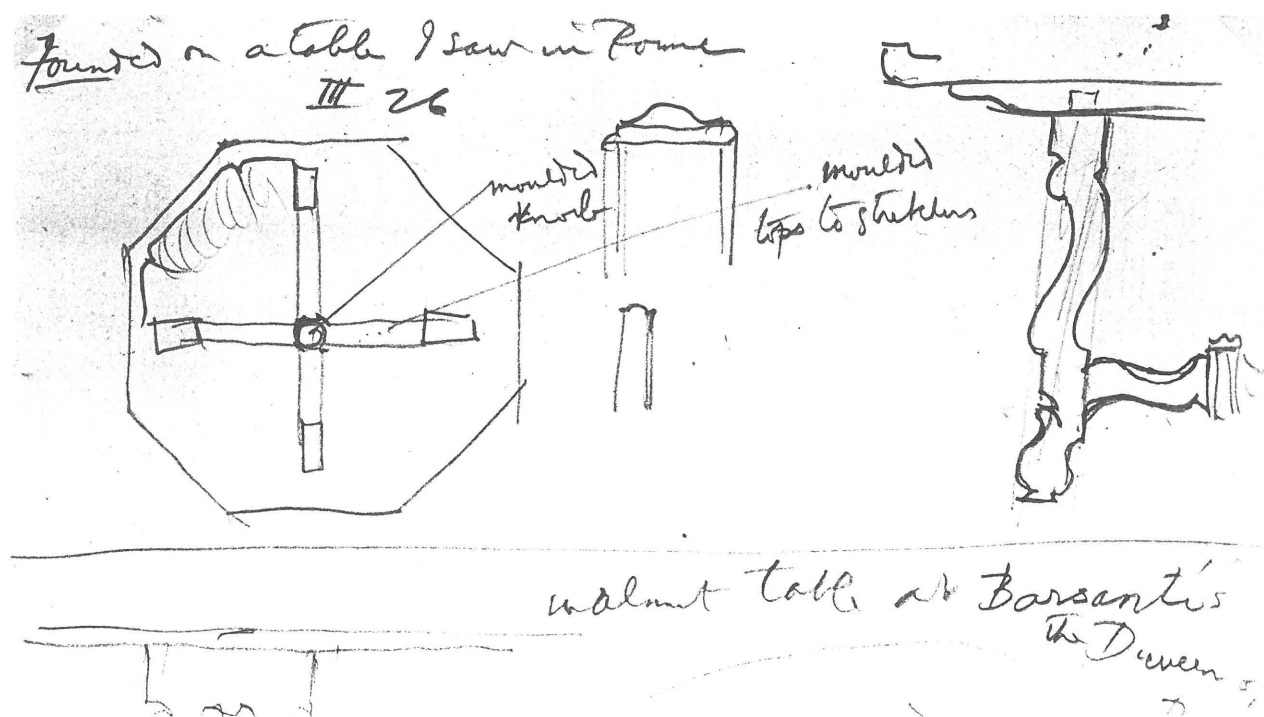 Founded on a table I saw in Rome
III 26
moulded
knob
moulded
tops to stretchers
walnut table at Barsanti's
the Duveen